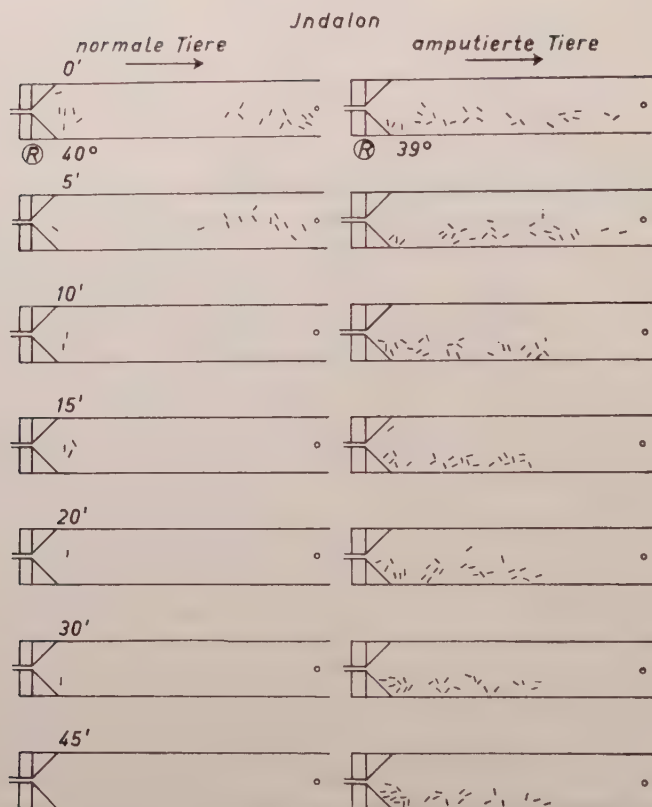 Jndalon
normale Tiere
amputierte Tiere
0'
R 40°
R 39°
5'
10'
15'
20'
30'
45'